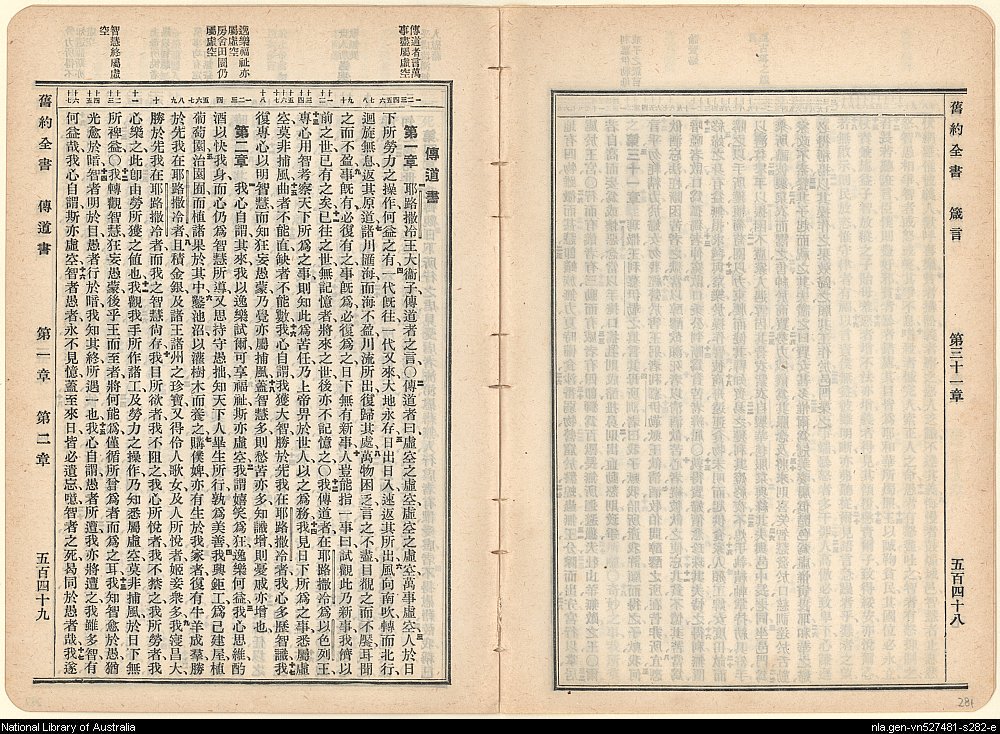 舊約全書 箴言 第三十一章 五百四十八
傳道者言萬
事盡屬虛空
逸樂福祉亦
屬虛空
房舍田園仍
屬虛空
智慧終屬虛
空
傳道書
第一章 耶路撒冷王大衞子傳道者之言○傳道者曰虛空之虛空虛空之虛空萬事虛空人於日
下所勞力之操作何益之有一代旣往一代又來大地永存日出日入速返其所出風向南吹轉而北行
迴旋無息返其原道諸川匯海而海不盈川流所出復歸其處萬物困乏言之不盡目觀之而不饜耳聞
之而不盈事旣有必復有之事旣爲必復爲之日下無有新事人豈能指一事曰試觀此乃新事我儕以
前之世已有之矣已往之世無記憶者將來之世後亦不記憶之○我傳道者在耶路撒冷爲以色列王
專心用智考察天下所爲之事則知此爲苦任乃上帝畀於世人以之爲務我見日下所爲之事悉屬虛
空莫非捕風曲者不能直缺者不能數我心自謂我獲大智勝於先我在耶路撒冷者我心多歷智識我
復專心以明智慧而知狂妄愚蒙乃覺亦屬捕風蓋智慧多則愁苦亦多知識增則憂戚亦增也
第二章 我心自謂其來我以逸樂試爾可享福祉斯亦虛空我謂嬉笑爲狂逸樂何益我心思維酌
酒以快我身而心仍爲智慧所導又思持守愚拙知天下人畢生所行孰爲美善我興鉅工爲己建屋植
葡萄園治園囿而植諸果於其中鑿池沼以灌樹木而養之購僕婢亦有生於我家者復有牛羊成羣勝
於先我在耶路撒冷者且積金銀及諸王諸州之珍寶又得伶人歌女及人所悅者姬妾衆多我寖昌大
勝於先我在耶路撒冷者而我之智慧尙存我目所欲者我不阻之我心所悅者我不禁之我所勞者我
心樂之此卽由勞所獲之値也我觀我手所作諸工及勞力之操作乃知悉屬虛空莫非捕風於日下無
所裨益○我轉觀智慧狂妄愚蒙後乎王而至者將何能爲僅循所嘗爲者而爲之耳我知智愈於愚猶
光愈於暗智者明於目愚者行於暗我知其終所遇一也我心自謂愚者所遭我亦將遭之我雖多智有
何益哉我心自謂斯亦虛空智者愚者永不見憶蓋至來日皆必遺忘噫智者之死曷同於愚者哉我遂
舊約全書 傳道書 第一章 第二章 五百四十九
National Library of Australia
nla.gen-vn527481-s282-e
281